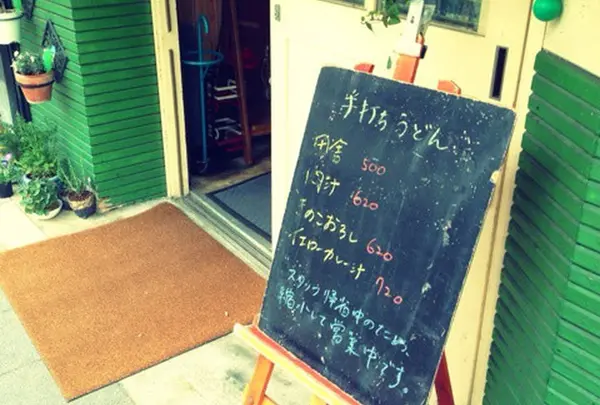 手打ちうどん
田舎 500
肉汁 620
きのこおろし 620
イエローカレー汁 720
スタッフ帰省中のため、
縮小して営業中です。